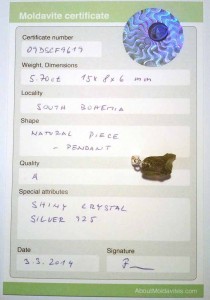 Moldavite certificate
Certificate number
Weight, Dimensions
5.70ct 15x8x6 mm
Locality
SOUTH BOHEMIA
Shape
NATURAL PIECE
- PENDANT
Quality
A
Special attributes
SHINY CRYSTAL
SILVER 925
Date
Signature
3.3.2014
AboutMoldavites.com